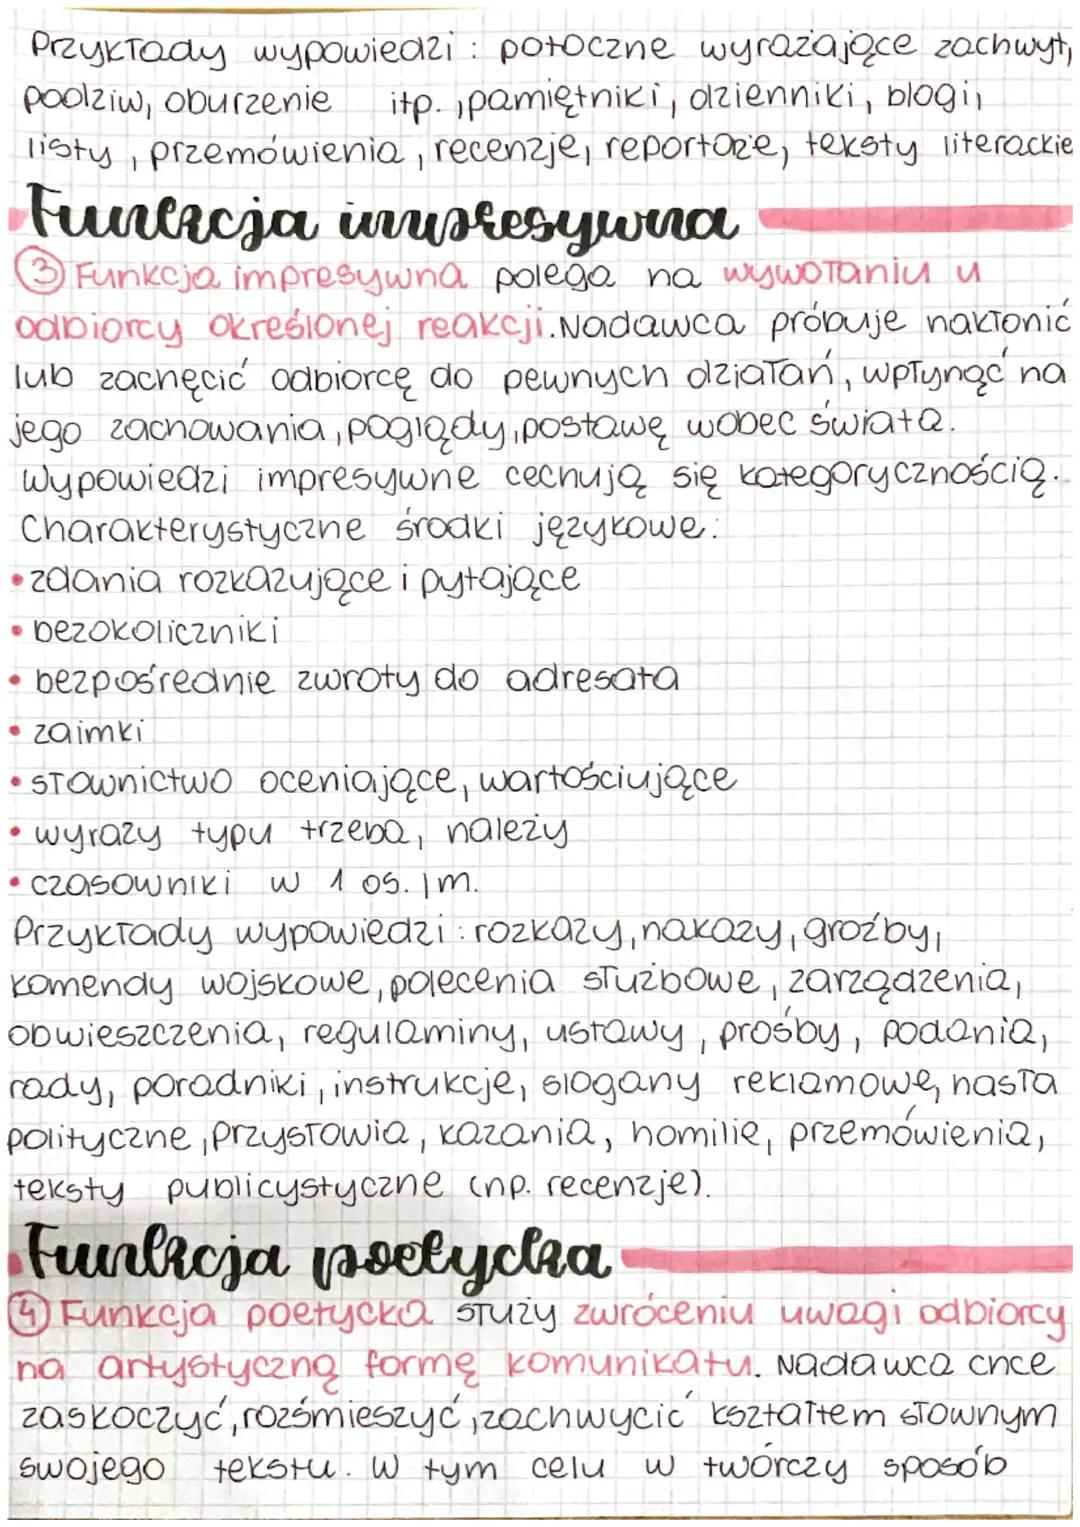 Przykłady wypowiedzi: potoczne wyrażające zachwyt,
podziw, oburzenie itp., pamiętniki, dzienniki, blogi,
listy, przemówienia, recenzje, reportaże, teksty literackie
Funkcja impresywna
③ Funkcja impresywna polega na wywołaniu u
odbiorcy określonej reakcji. Nadawca próbuje nakłonić
lub zachęcić odbiorcę do pewnych działań, wpłynąć na
jego zachowania, poglądy, postawę wobec świata.
Wypowiedzi impresywne cechują się kategorycznością.
Charakterystyczne środki językowe:
• zdania rozkazujące i pytające
• bezokoliczniki
• bezpośrednie zwroty do adresata
• zaimki
• słownictwo oceniające, wartościujące
• wyrazy typu trzeba, należy
• czasowniki w 1 os. lm.
Przykłady wypowiedzi: rozkazy, nakazy, groźby,
komendy wojskowe, polecenia służbowe, zarządzenia,
obwieszczenia, regulaminy, ustawy, prośby, podania,
rady, poradniki, instrukcje, slogany reklamowe, hasła
polityczne, przysłowia, kazania, homilie, przemówienia,
teksty publicystyczne (np. recenzje).
Funkcja poetycka
④ Funkcja poetycka służy zwróceniu uwagi odbiorcy
na artystyczną formę komunikatu. Nadawca chce
zaskoczyć, rozśmieszyć, zachwycić kształtem słownym
swojego tekstu. W tym celu w twórczy sposób